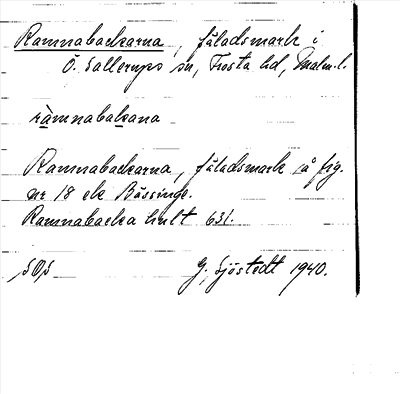 Ramnabackarna, fäladsmark i
Ö. Sallerups sn, Frosta hd, Malm. l.
ràmnabakana
Ramnabackarna, fäladsmark på fig.
nr 18 ek Bässinge.
Ramnabacka hult 631.
SOS G. Sjöstedt 1940.